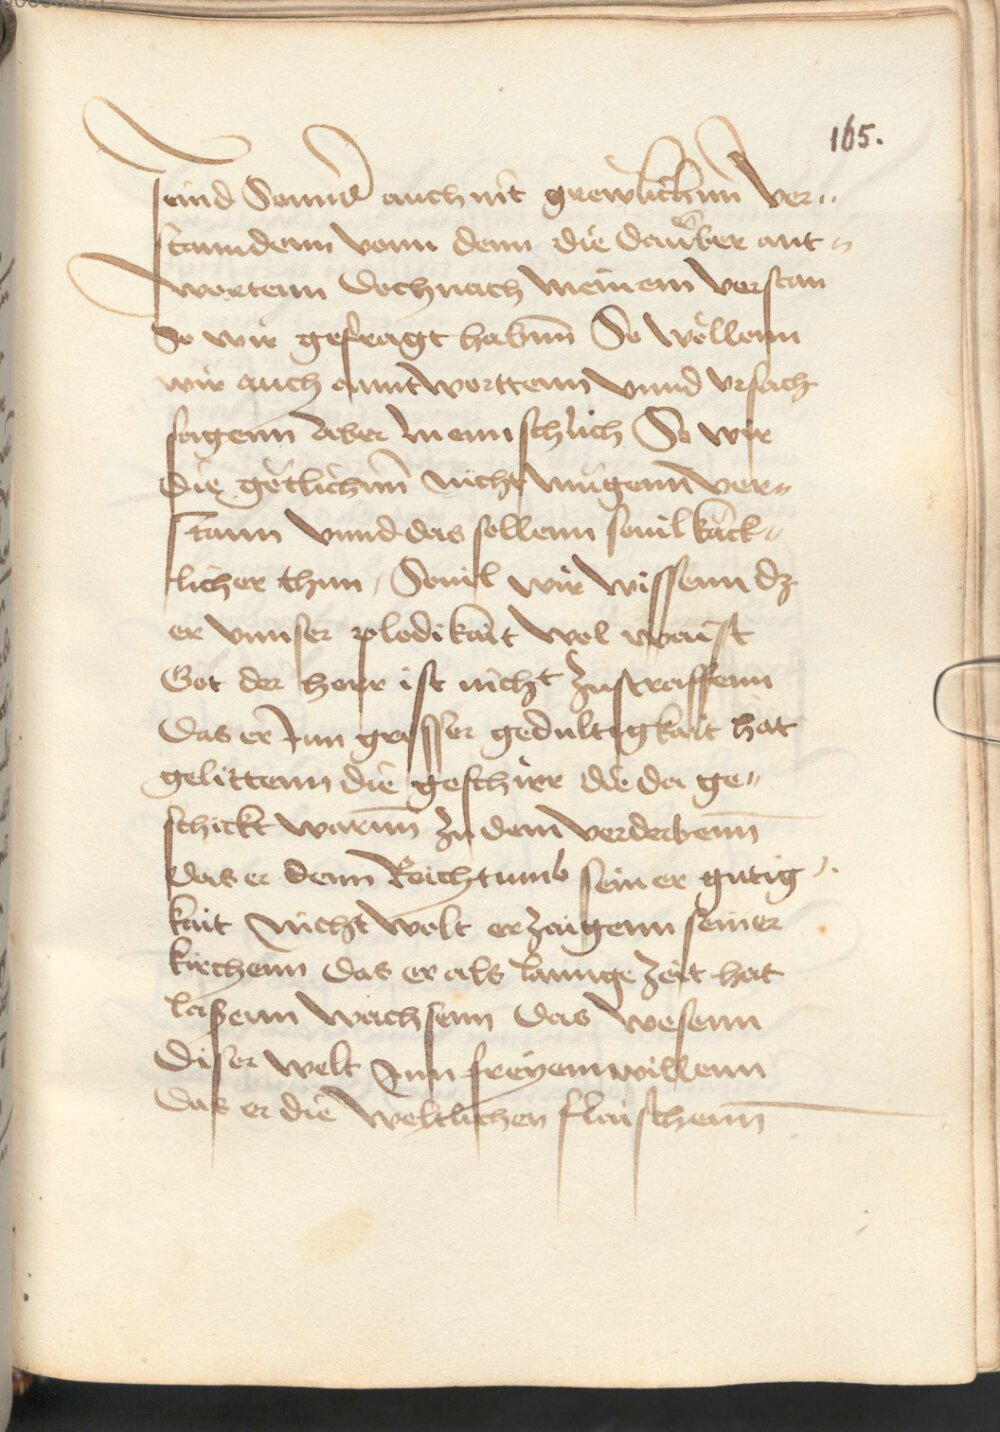 165.
seind Sonnder auch nit grewlichenn ver„
standenn vonn denn die dawber ant„
worttenn Doch nach meinem verstan
So wir gefragt habenn So wöllenn
wir auch anntworttenn vnnd vrsach
sagenn aber mennschlich So wir
die götlichenn nicht mügenn ver„
stann vnnd das sollenn souil käck„
licher thun, Souil wir wissenn dz
er vnnser plodikait wol waist
Got der herr ist nicht zustraffenn
Das er Inn grosser gedultigkait hat
gelittenn die geschirr die da ge„
schickt warenn zu dem verderbenn
Das er denn Reichtumb seiner gutig„
kait nicht wolt erzaigenn seiner
kirchenn Das er als lannge zeit hat
laßenn wachsenn das wesenn
Diser welt Inn freyem willenn
Das er die weltlichen flaischenn